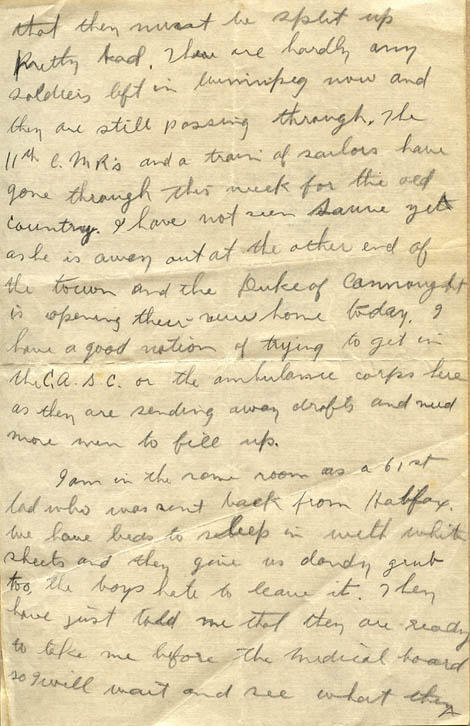 that they must be split up
pretty bad. There are hardly any
soldiers left in Winnipeg now and
they are still passing through. The
11th C.M.R's and a train of sailors have
gone through this week for the old
country. I have not seen yet
as he is away out at the other end of
the town and the Duke of Connaught
is opening their new home today. I
have a good notion of trying to get in
the C.A.S.C. or the ambulance corps here
as they are sending away drafts and need
more men to fill up.
I am in the same room as a 61st
lad who was sent back from Halifax.
We have beds to sleep in with white
sheets and they give us dandy grub
too, the boys hate to leave it. They
have just told me that they are ready
to take me before the medical board
so I will wait and see what they